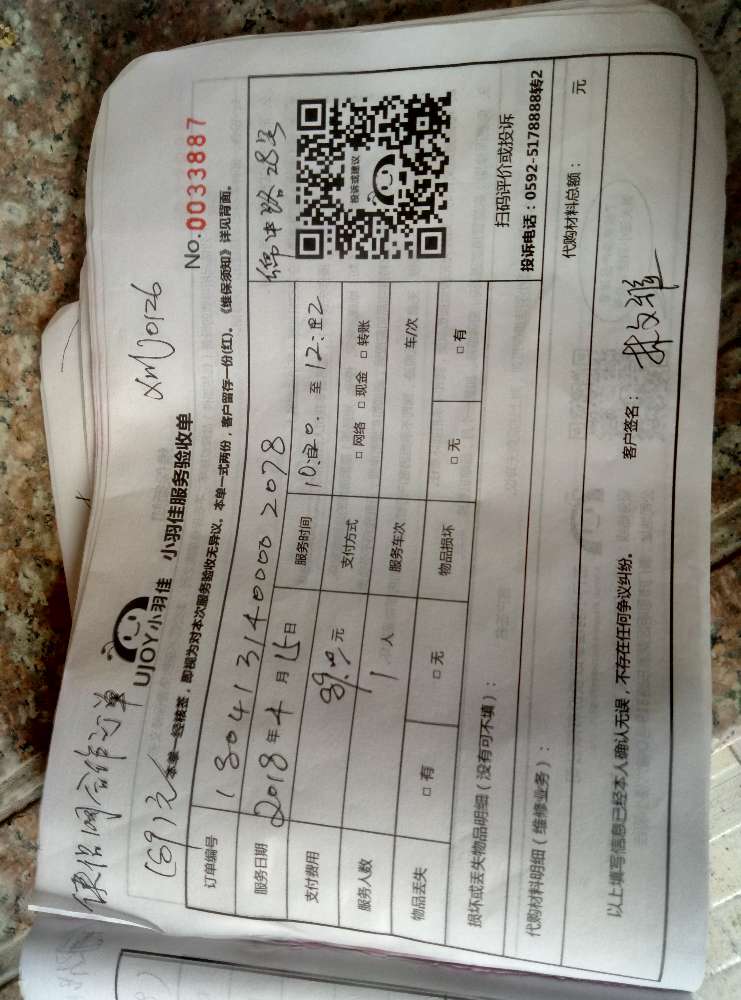 合作订单
(89)元
UJOY小羽佳 小羽佳服务验收单
XMJ0126
No.0033887
本单一经核签，即视为对本次服务验收无异议。本单一式两份，客户留存一份(红)。《维保须知》详见背面。
订单编号 180413140000 2078
中路28号
服务日期 2018年4月15日 服务时间 至
支付费用 89.0元 支付方式 □网络 □现金 □转账
服务人数 1人 服务车次 车/次
物品丢失 □有 □无 物品损坏 □无 □有
投诉或建议
扫码评价或投诉
投诉电话：0592-5178888转2
损坏或丢失物品明细（没有可不填）：
代购材料明细（维修业务）： 代购材料总额： 元
以上填写信息已经本人确认无误，不存在任何争议纠纷。 客户签名：